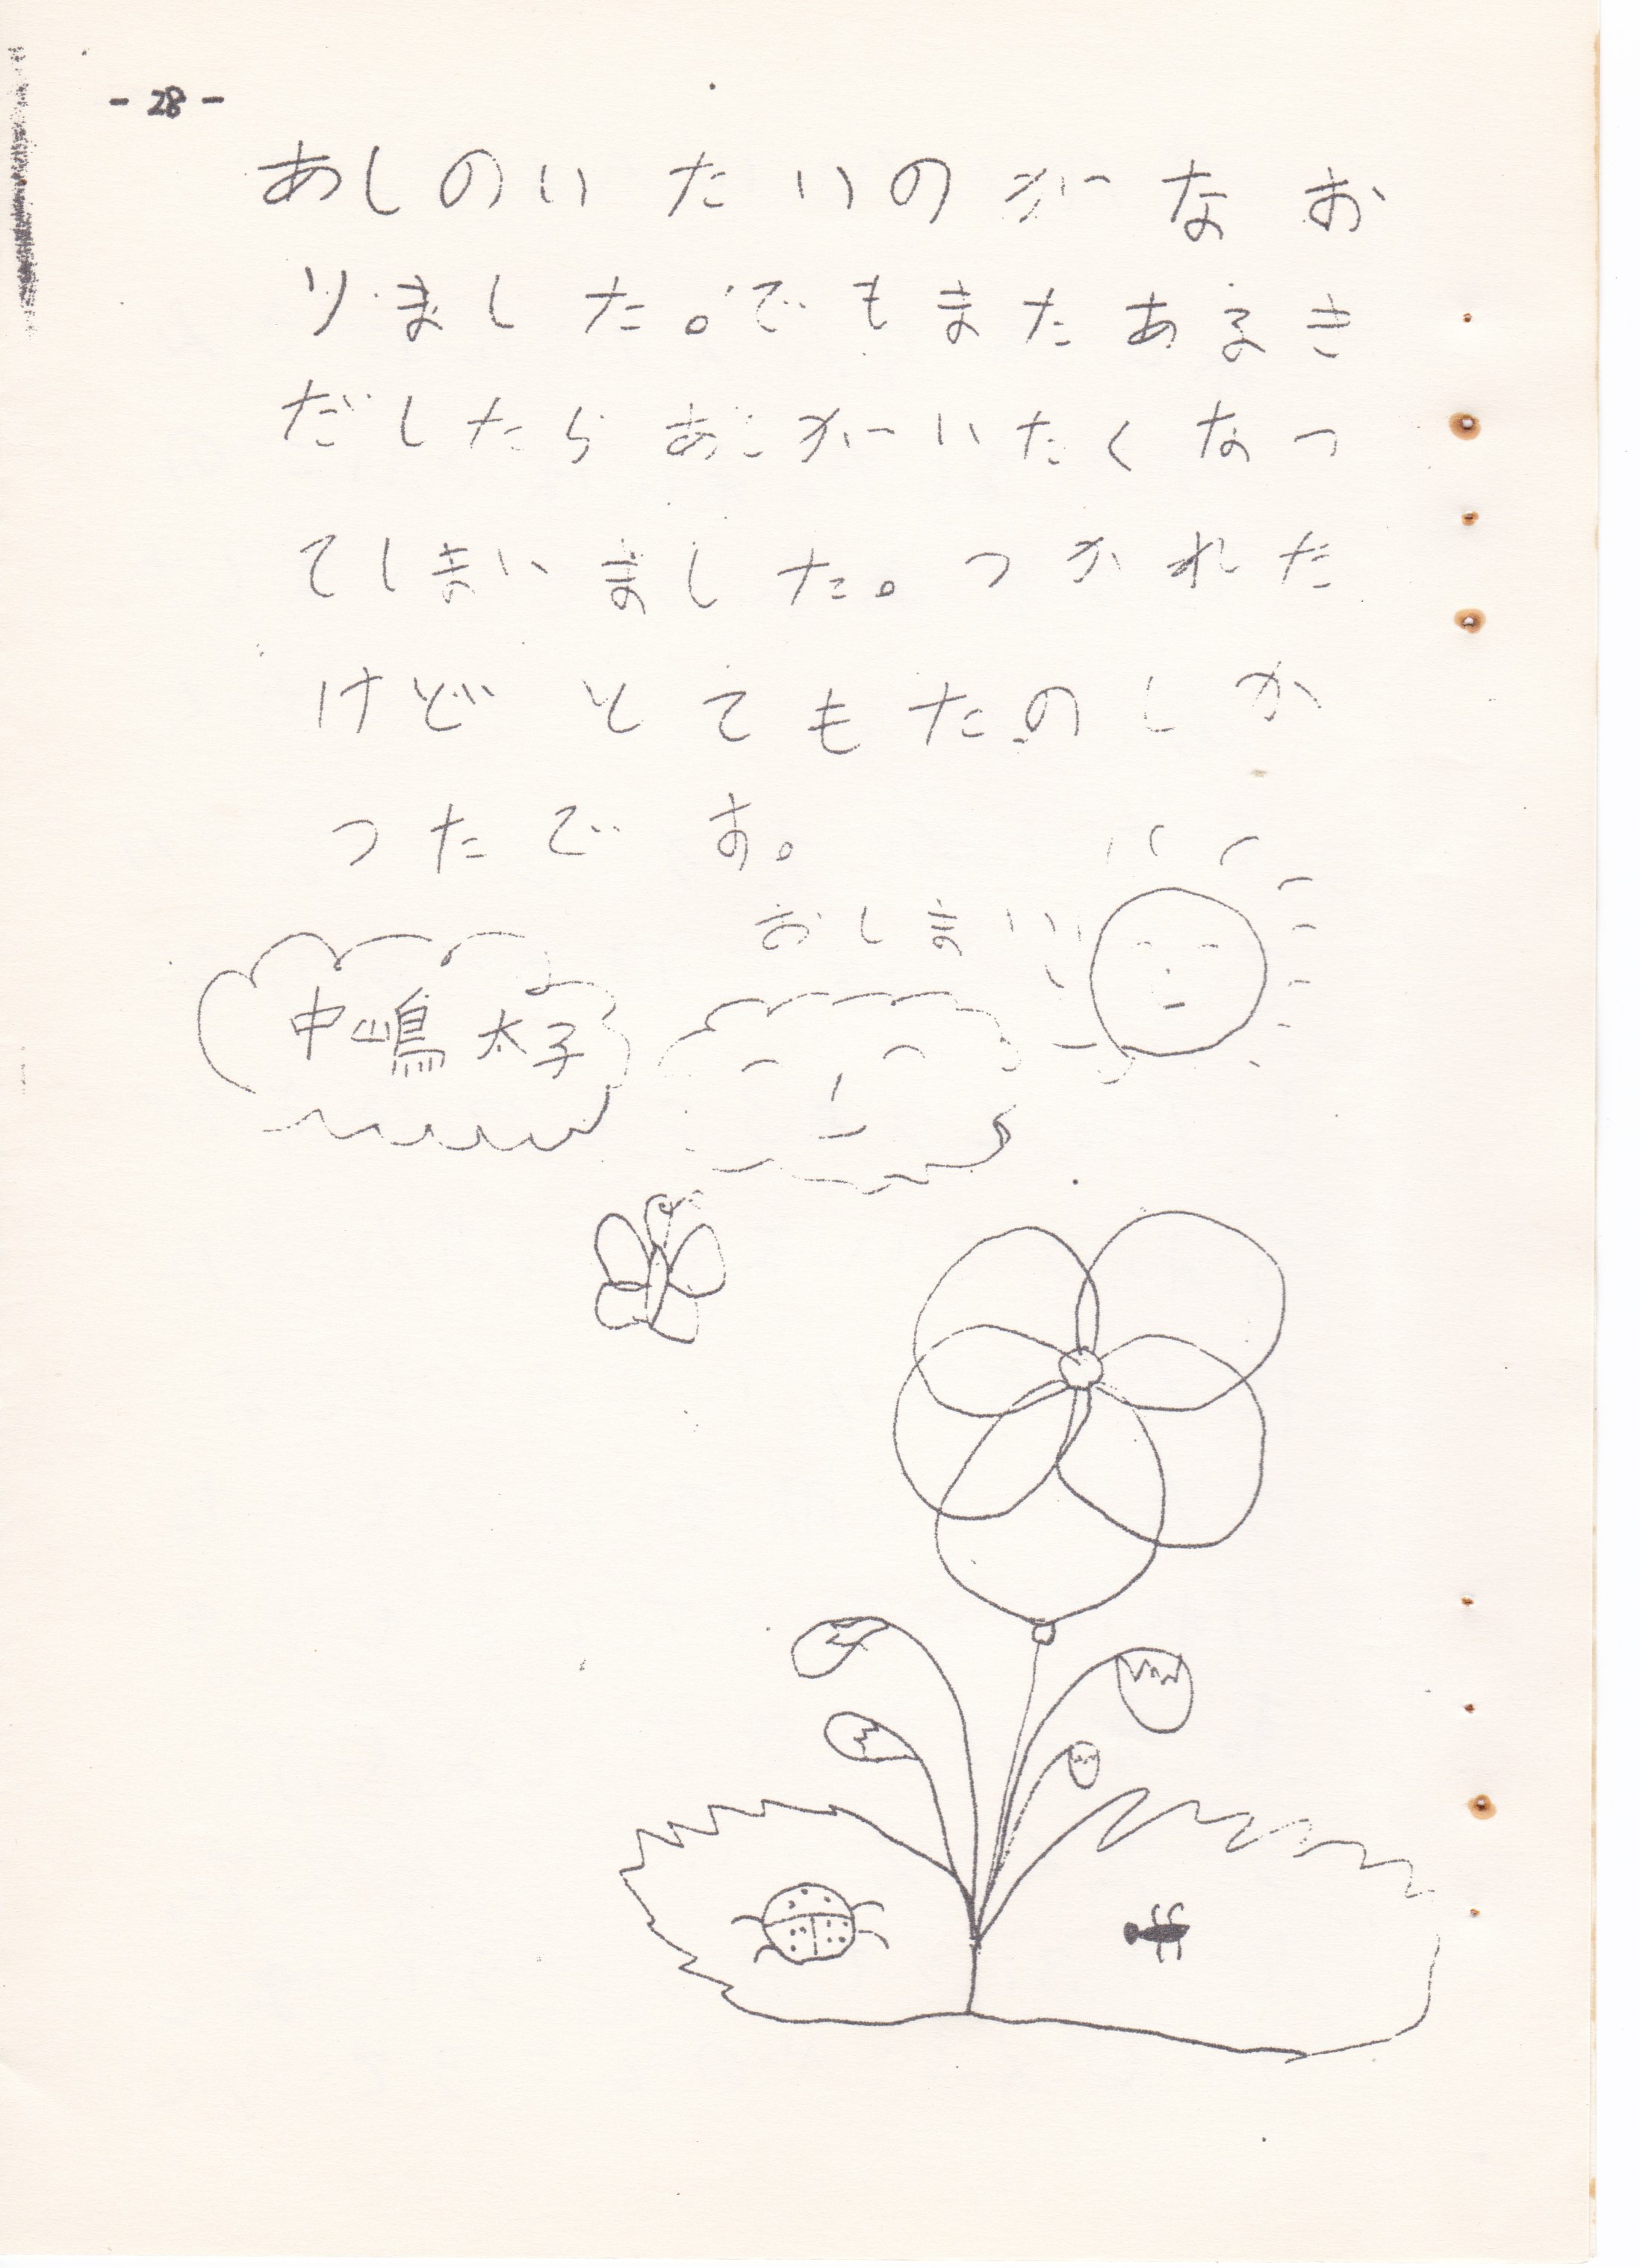 - 28 -
あしのいたいのがなお
りました。でもまたあるき
だしたらあしがいたくなっ
てしまいました。つかれた
けどとてもたのしか
ったです。
おしまい
中嶋 太子